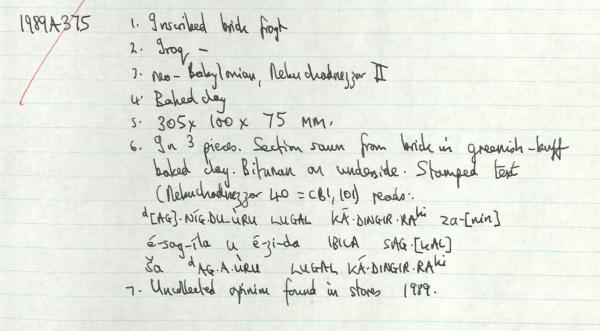 1989A375 1. Inscribed brick fragt
2. Iraq -
3. neo-Babylonian, Nebuchadnezzar II
4. Baked clay
5. 305 x 100 x 75 MM.
6. In 3 pieces. Section sawn from brick in greenish-buff
baked clay. Bitumen on underside. Stamped text
(Nebuchadnezzar 40 = CBI, 101) reads:
ᵈ[AG]·NÍG.DU-ÙRU LUGAL KÁ·DINGIR·RAᵏⁱ za-[nin]
é-sag-íla u é-zi-da IBILA SAG·[KAL]
ša ᵈAG.A.ÙRU LUGAL KÁ·DINGIR·RAᵏⁱ
7. Uncollected opinion found in stores 1989.